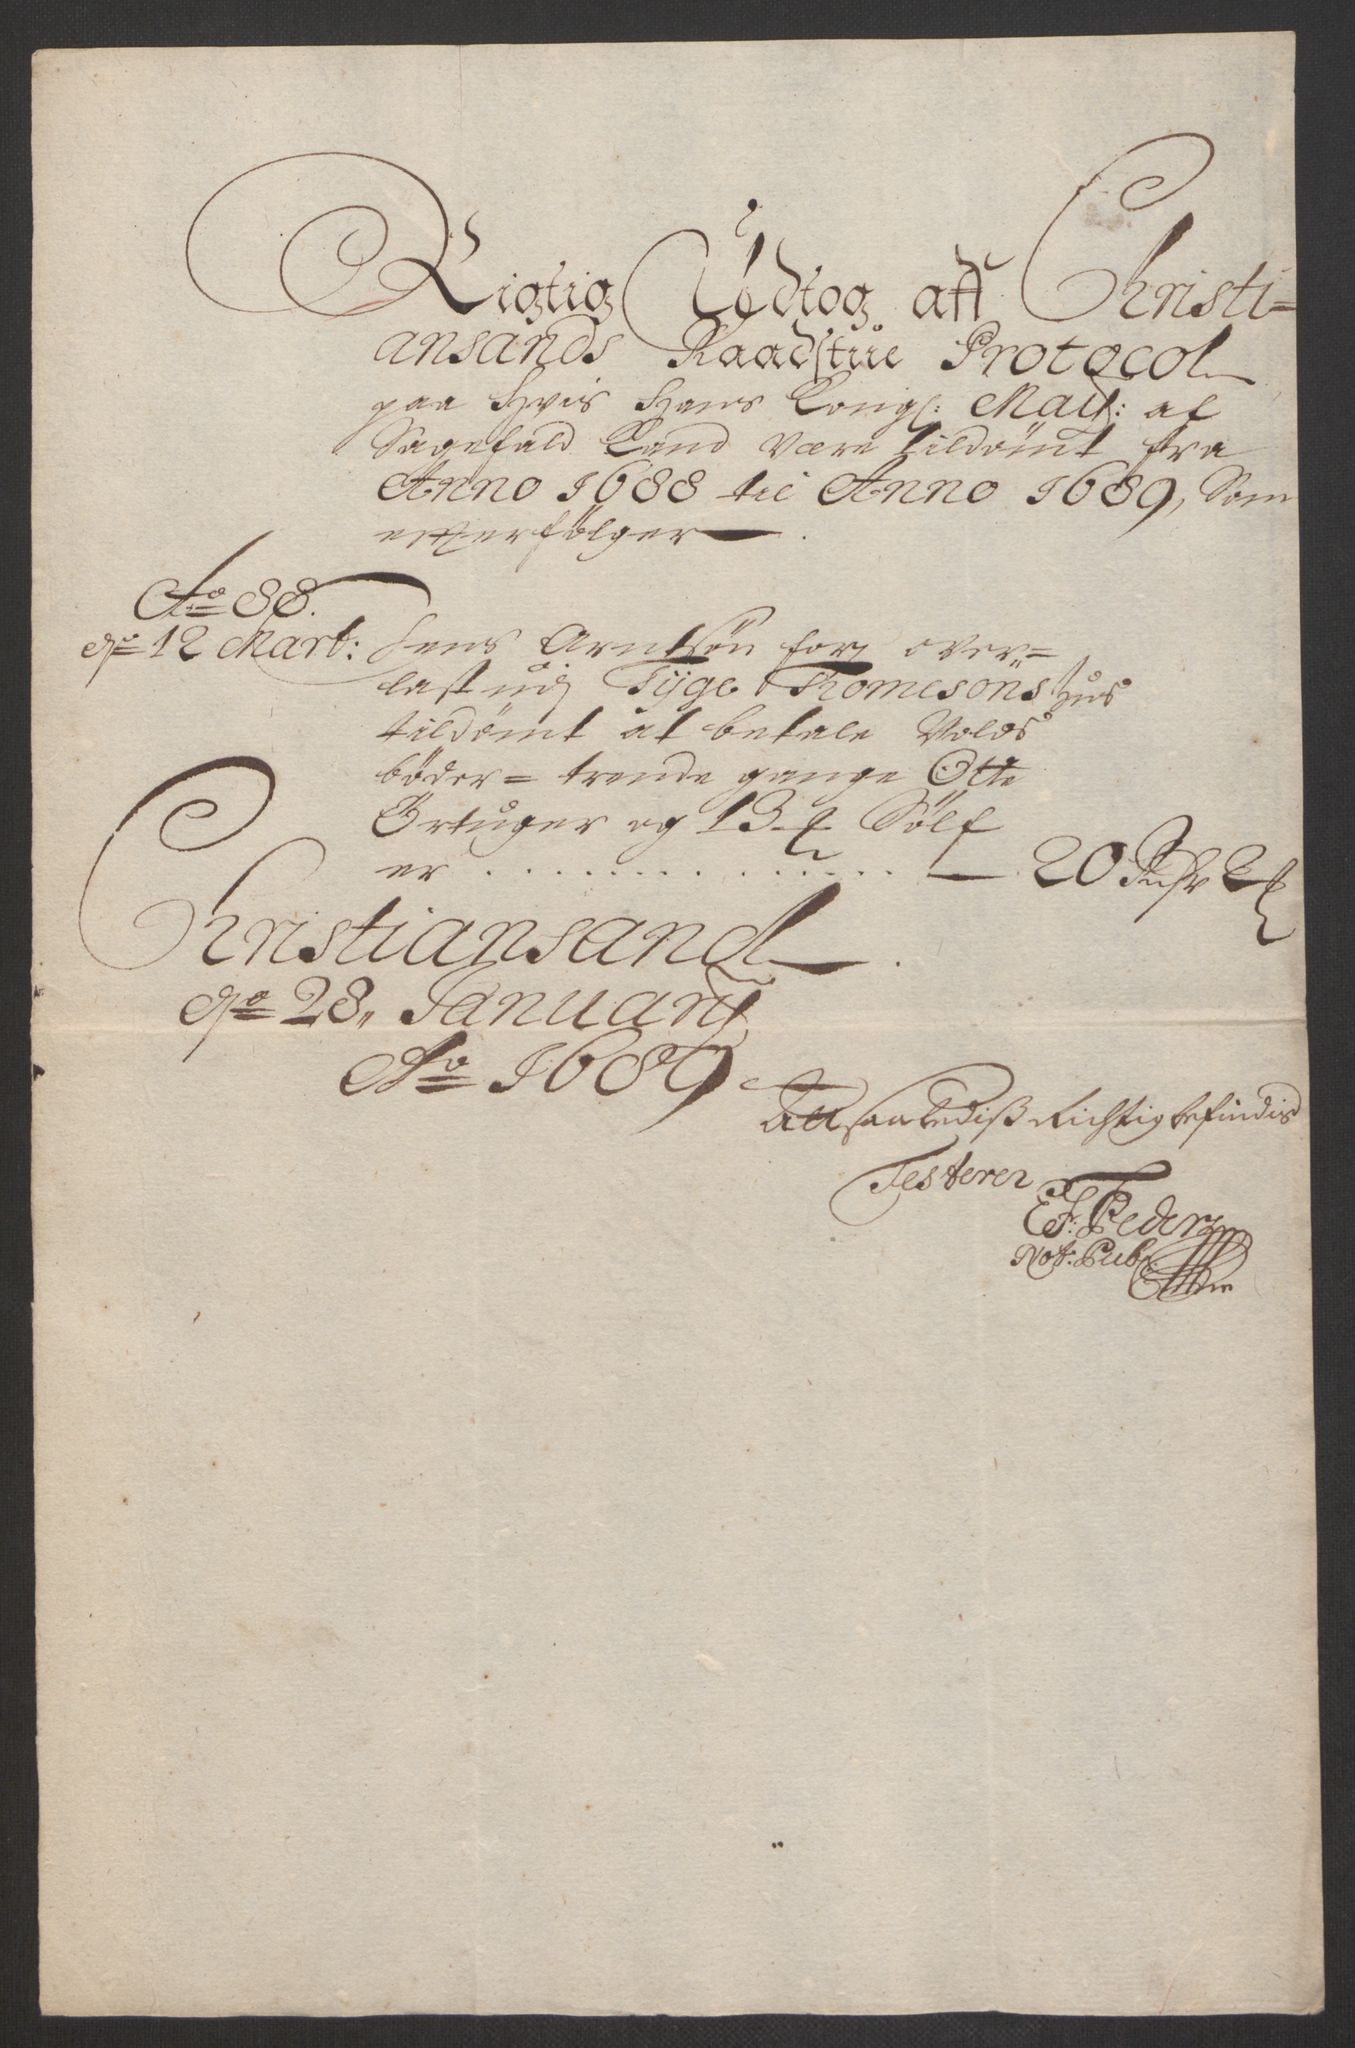 Rigtig Udtog aff Christi=
ansands Raadstüe Protocol
paa hvis hans Kongl: Mait: af
Sagefald Kand være tildømt fra
Anno 1688 til Anno 1689, Som
efterfølger
Ao 88.
do 12 Mart: Jens Arntsøn for over=
last udj Tyge Thomesøns Huus
tildømt at betale Volds
bøder= trende gange Otte
Örtuger og 13 ß Sölf
er . . . . . . . . . . . . 20 Rdr 2 ß
Christiansand
do 28, January
Ao 1689
Att saalediß Richtig befindis
Testerer
Not: Publ: